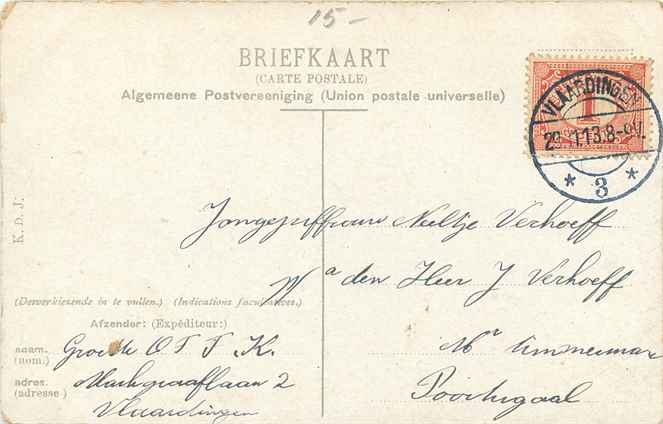 15-
BRIEFKAART
(CARTE POSTALE)
Algemeene Postvereeniging (Union postale universelle)
VLAARDINGEN
29. 1.13.8-9V.
* 3 *
1
K. D. J.
Jongejuffrouw Neeltje Verhoeff
p/a den Heer J Verhoeff
Mr Timmerman
Poortugaal
(Desverkiezende in te vullen.) (Indications facultatives.)
Afzender: (Expéditeur:)
naam. (nom.) O T T. K.
adres. (adresse) Markgraaflaan 2
Vlaardingen